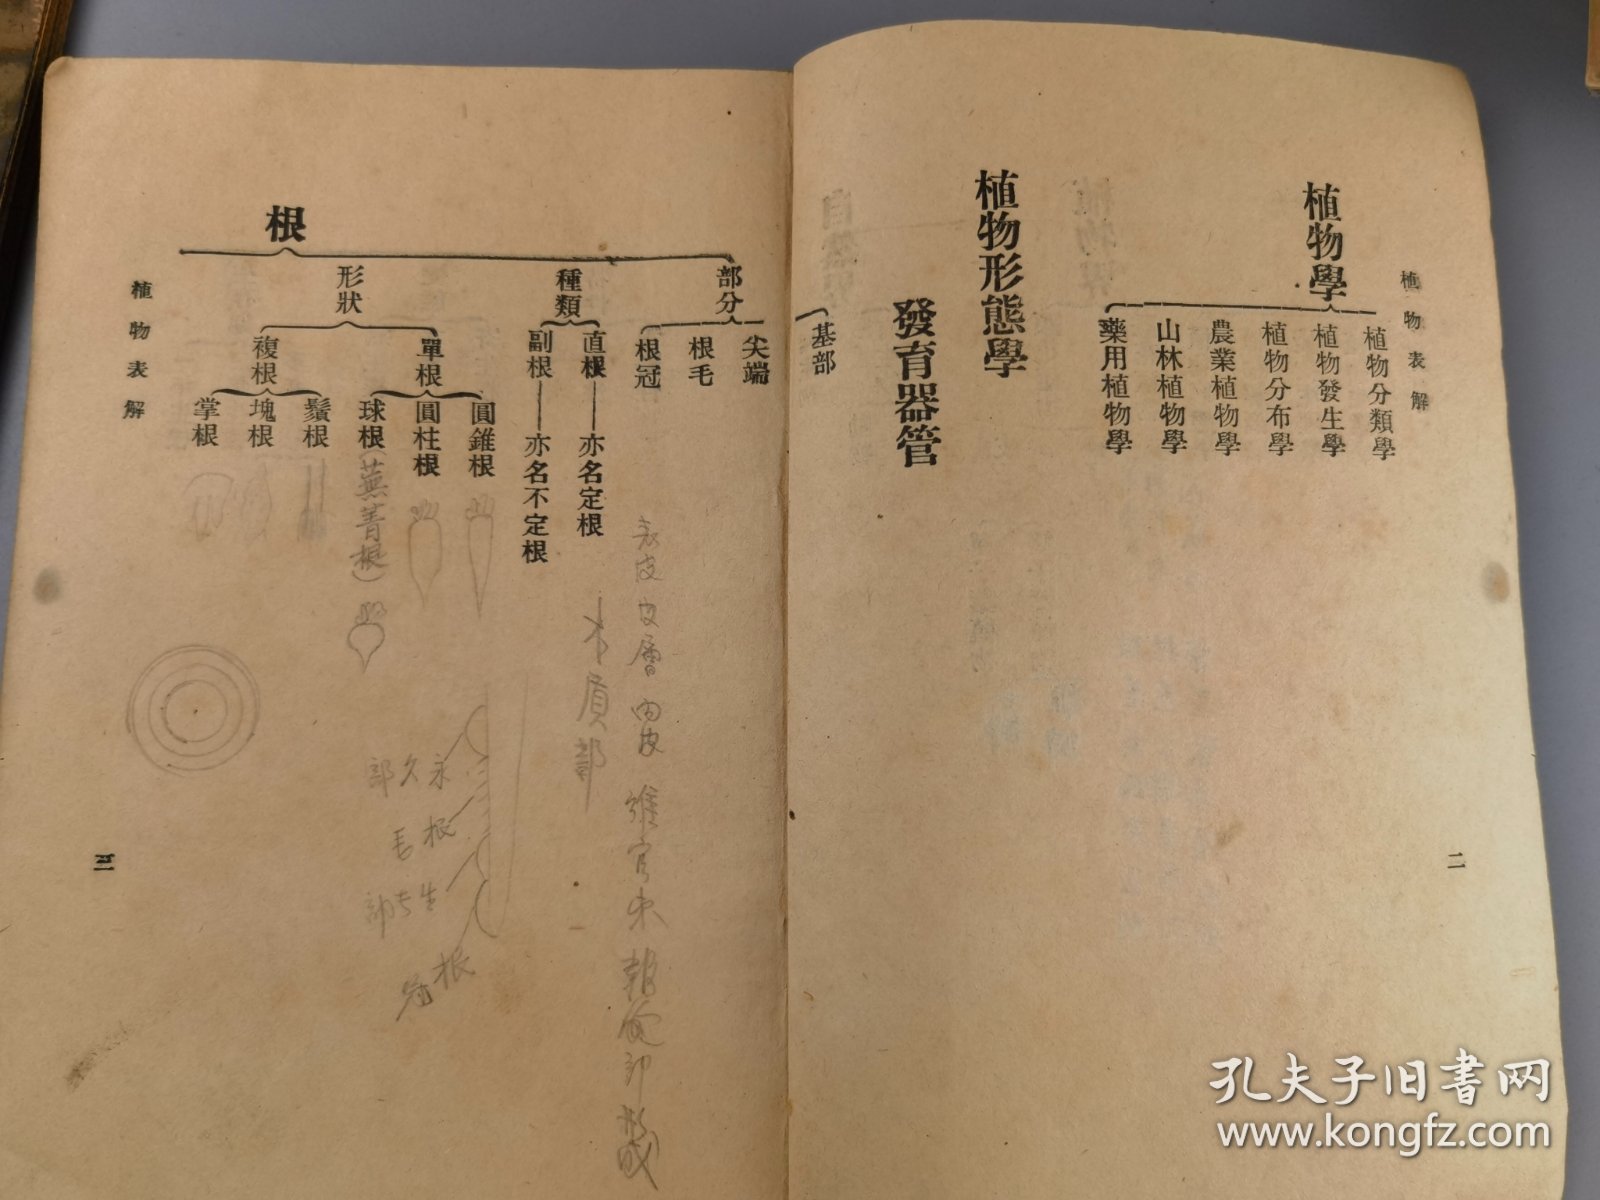 植物表解
植物學
植物分類學
植物發生學
植物分布學
農業植物學
山林植物學
藥用植物學
植物形態學
發育器管
基部
二
部分
尖端
根毛
根冠
種類
直根——亦名定根
副根——亦名不定根
根
形狀
單根
圓錐根
圓柱根
球根(蕪菁根)
複根
鬚根
塊根
掌根
植物表解
三
表皮 皮層 內皮
木質部
永久部
根毛
生長部
根
孔夫子旧书网
www.kongfz.com